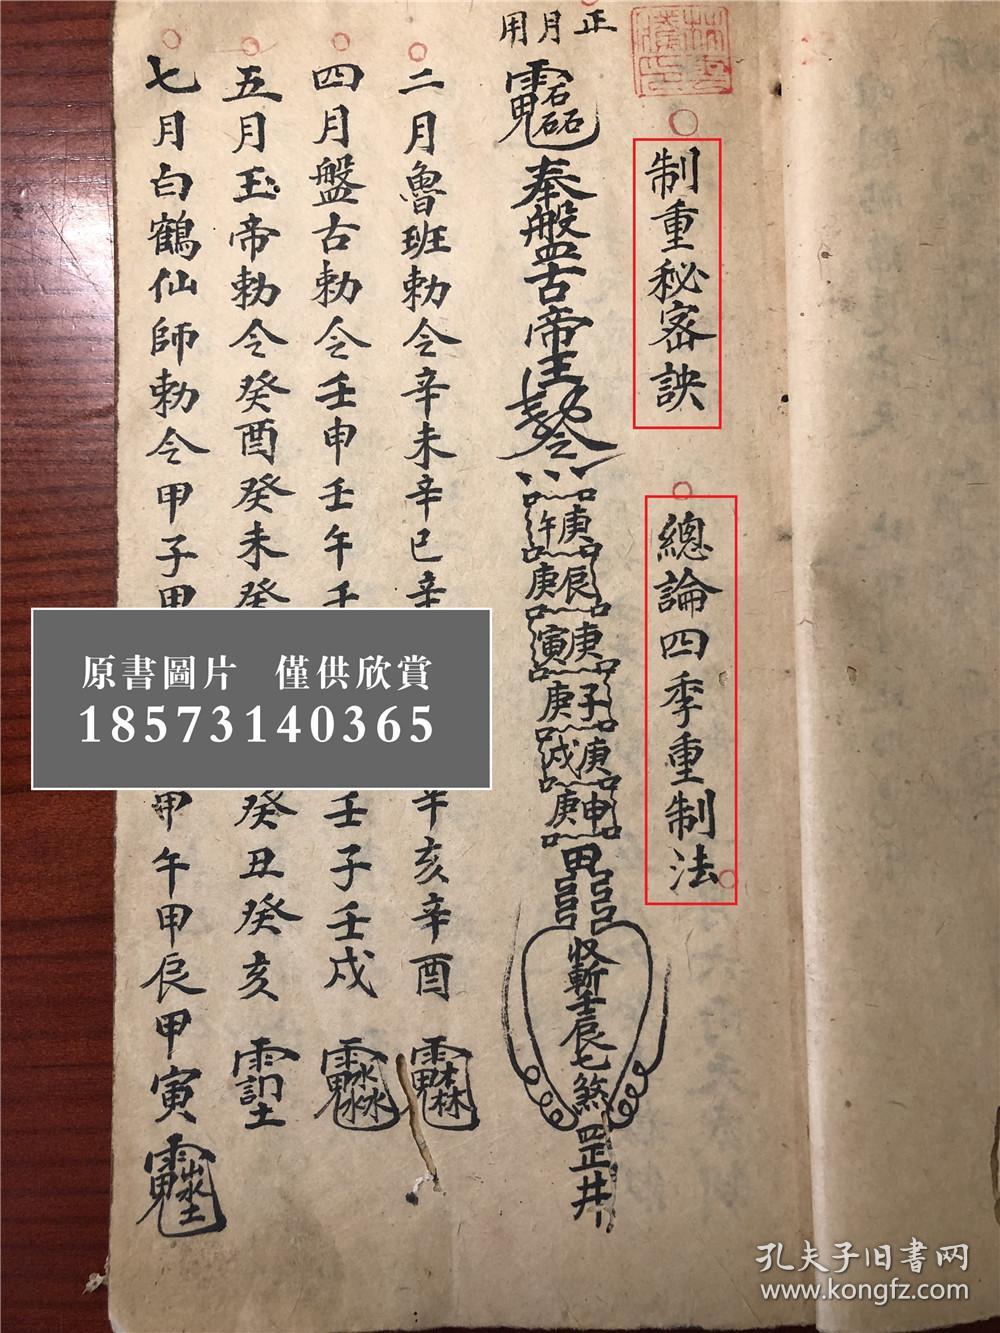 制重秘密訣
總論四季重制法
正月用
奉盤古帝王
庚午
庚辰
庚寅
庚子
庚戌
庚申
收斬壬辰七煞罡井
二月魯班勅令辛未辛巳辛
辛亥辛酉
四月盤古勅令壬申壬午壬
壬子壬戌
五月玉帝勅令癸酉癸未癸
癸丑癸亥
七月白鶴仙師勅令甲子甲
甲午甲辰甲寅
原書圖片 僅供欣賞
18573140365
孔夫子旧書网
www.kongfz.com